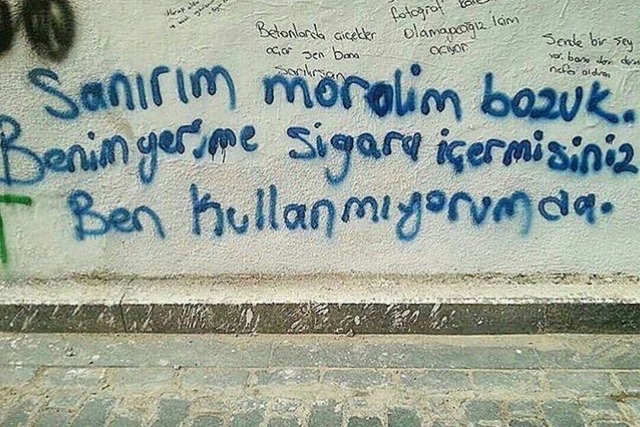 fotoğraf
Betonlarda çiçekler
açar sen bana
sarılırsan
olamayacağız
açıyor
Sende bir şey
var, bana
nefes aldıran
Sanırım moralim bozuk.
Benim yerime sigara içermisiniz
Ben kullanmıyorumda.